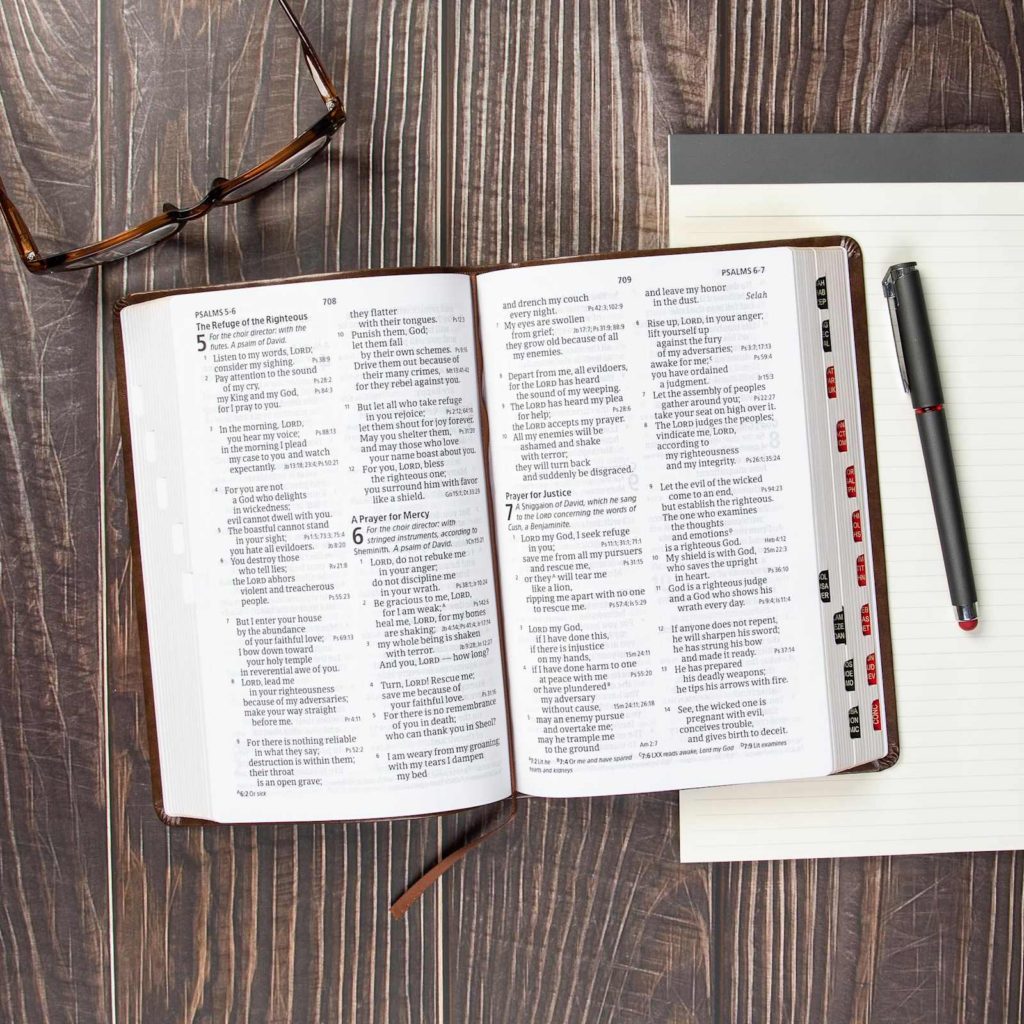 PSALMS 5-6
708
The Refuge of the Righteous
5 For the choir director: with the
flutes. A psalm of David.
1 Listen to my words, LORD;
consider my sighing. Ps 38:9
2 Pay attention to the sound
of my cry, Ps 28:2
my King and my God, Ps 84:3
for I pray to you.
3 In the morning, LORD,
you hear my voice; Ps 88:13
in the morning I plead
my case to you and watch
expectantly. Jb 13:18; 23:4; Ps 50:21
4 For you are not
a God who delights
in wickedness;
evil cannot dwell with you.
5 The boastful cannot stand
in your sight; Ps 1:5; 73:3; 75:4
you hate all evildoers. Jb 8:20
6 You destroy those
who tell lies; Rv 21:8
the LORD abhors
violent and treacherous
people. Ps 55:23
7 But I enter your house
by the abundance
of your faithful love; Ps 69:13
I bow down toward
your holy temple
in reverential awe of you.
8 LORD, lead me
in your righteousness
because of my adversaries;
make your way straight
before me. Pr 4:11
9 For there is nothing reliable
in what they say; Ps 52:2
destruction is within them;
their throat
is an open grave;
A6:2 Or sick
they flatter
with their tongues. Ps 12:3
10 Punish them, God;
let them fall
by their own schemes. Ps 9:16
Drive them out because of
their many crimes, Mt 13:41-42
for they rebel against you.
11 But let all who take refuge
in you rejoice; Ps 2:12; 64:10
let them shout for joy forever.
May you shelter them, Ps 31:20
and may those who love
your name boast about you.
12 For you, LORD, bless
the righteous one;
you surround him with favor
like a shield. Gn 15:1; Dt 33:29
A Prayer for Mercy
6 For the choir director: with
stringed instruments, according to
Sheminith. A psalm of David. 1Ch 15:21
1 LORD, do not rebuke me
in your anger;
do not discipline me
in your wrath. Ps 38:1; Jr 10:24
2 Be gracious to me, LORD,
for I am weak;A Ps 142:6
heal me, LORD, for my bones
are shaking; Jb 4:14; Ps 41:4; Jr 17:14
3 my whole being is shaken
with terror. Jb 9:28; Jn 12:27
And you, LORD — how long?
4 Turn, LORD! Rescue me;
save me because of
your faithful love. Ps 31:16
5 For there is no remembrance
of you in death;
who can thank you in Sheol?
6 I am weary from my groaning;
with my tears I dampen
my bed
709
PSALMS 6-7
and drench my couch
every night. Ps 42:3; 102:9
7 My eyes are swollen
from grief; Jb 17:7; Ps 31:9; 88:9
they grow old because of all
my enemies.
8 Depart from me, all evildoers,
for the LORD has heard
the sound of my weeping.
9 The LORD has heard my plea
for help; Ps 28:6
the LORD accepts my prayer.
10 All my enemies will be
ashamed and shake
with terror;
they will turn back
and suddenly be disgraced.
Prayer for Justice
7 A Shiggaion of David, which he sang
to the LORD concerning the words of
Cush, a Benjaminite.
1 LORD my God, I seek refuge
in you; Ps 11:1; 31:1; 71:1
save me from all my pursuers
and rescue me, Ps 31:15
2 or theyA will tear me
like a lion,
ripping me apart with no one
to rescue me. Ps 57:4; Is 5:29
3 LORD my God,
if I have done this,
if there is injustice
on my hands, 1Sm 24:11
4 if I have done harm to one
at peace with me Ps 55:20
or have plunderedB
my adversary
without cause, 1Sm 24:11; 26:18
5 may an enemy pursue
and overtake me;
may he trample me
to the ground Am 2:7
A7:2 Lit he B7:4 Or me and have spared C7:6 LXX reads awake, Lord my God D7:9 Lit examines
hearts and kidneys
and leave my honor
in the dust. Selah
6 Rise up, LORD, in your anger;
lift yourself up
against the fury
of my adversaries; Ps 3:7; 17:13
awake for me;C Ps 59:4
you have ordained
a judgment. Jr 15:3
7 Let the assembly of peoples
gather around you; Ps 22:27
take your seat on high over it.
8 The LORD judges the peoples;
vindicate me, LORD,
according to
my righteousness
and my integrity. Ps 26:1; 35:24
9 Let the evil of the wicked
come to an end, Ps 94:23
but establish the righteous.
The one who examines
the thoughts
and emotionsD
is a righteous God. Heb 4:12
10 My shield is with God, 2Sm 22:3
who saves the upright
in heart. Ps 36:10
11 God is a righteous judge
and a God who shows his
wrath every day. Ps 9:4; Is 11:4
12 If anyone does not repent,
he will sharpen his sword;
he has strung his bow
and made it ready. Ps 37:14
13 He has prepared
his deadly weapons;
he tips his arrows with fire.
14 See, the wicked one is
pregnant with evil,
conceives trouble,
and gives birth to deceit.
CONC